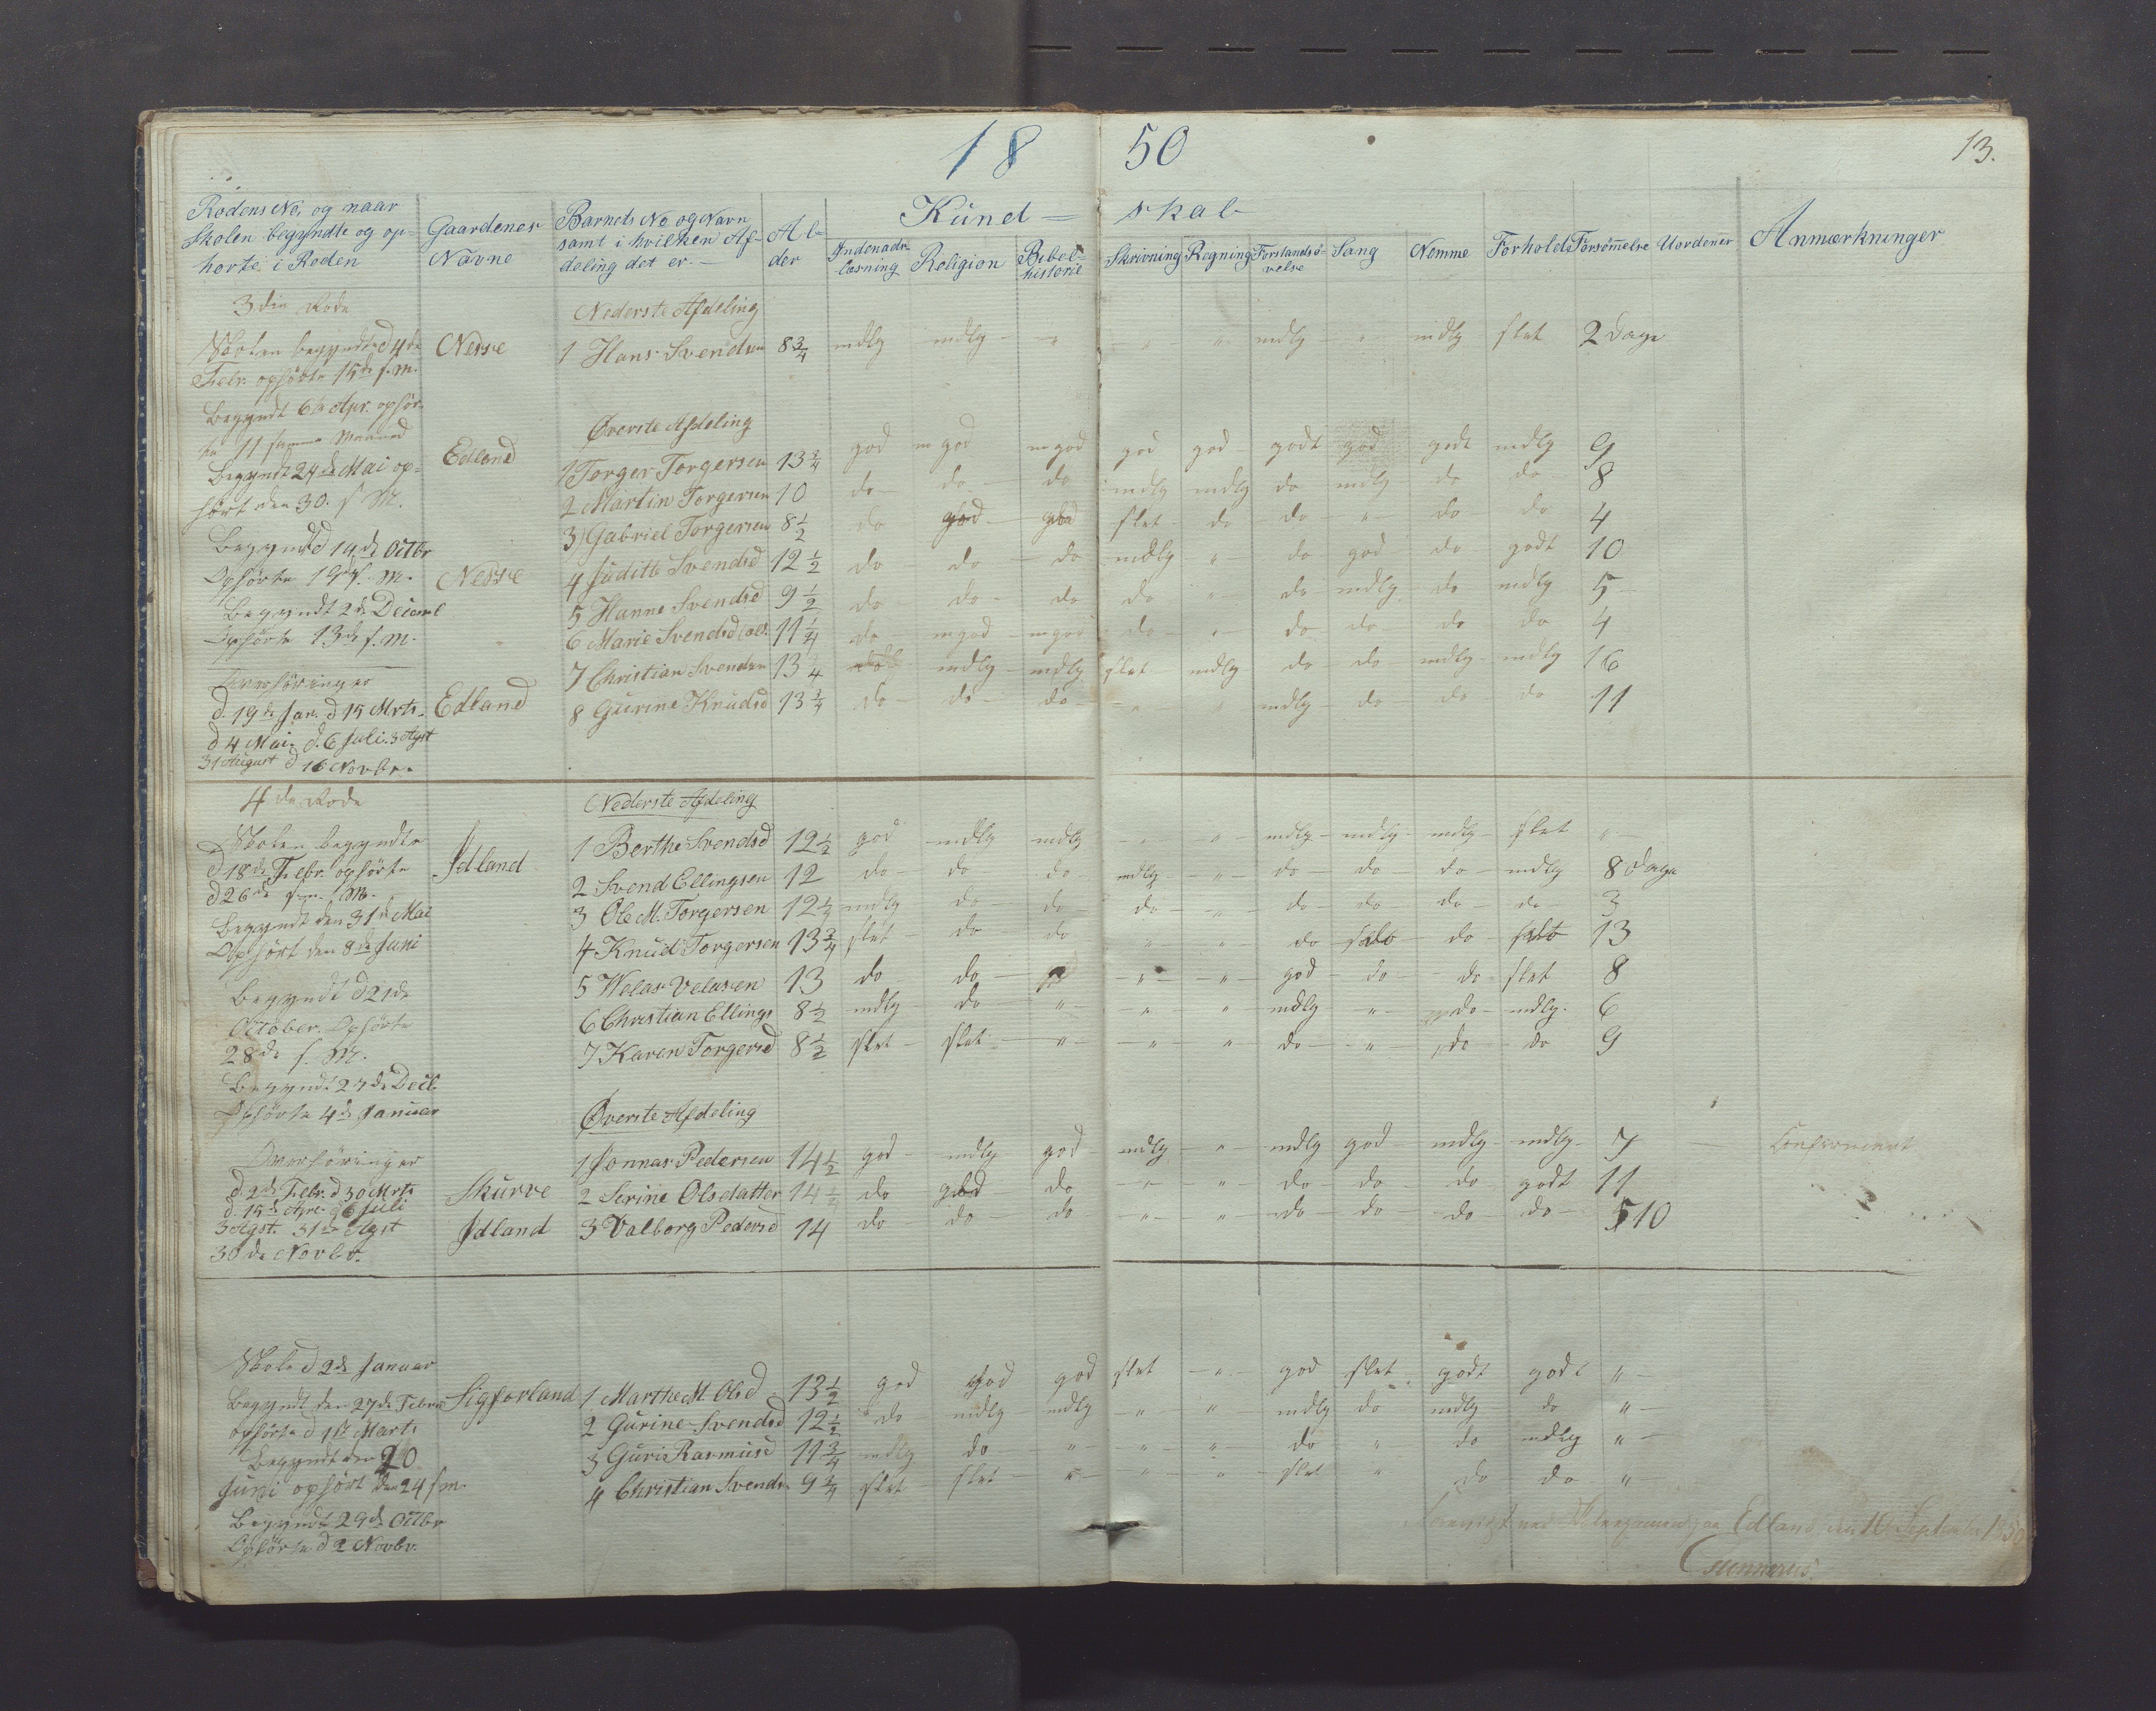 18 50 13.
Rodens No, og naar Skolen begyndte og ophørte i Roden
Gaardenes Navne
Barnets No og Navn samt i hvilken Afdeling det er.
Alder
Kund= skab
Indenadslæsning Religion Bibelhistorie Skrivning Regning Forstandsøvelse Sang Nemme Forhold Forsømmelse Uordener Anmærkninger
3die Rode
Nederste Afdeling
Skolen begyndte d 4de
Nesse 1 Hans Svendsen 8 3/4 mdlg mdlg " " " mdlg " mdlg slet 2 Dage
Febr. ophørte 15de s. m.
Begyndt 6te Apr. ophør-
te 11 samme Maaned
Øverste Afdeling
Begyndt 24de Mai op=
Edland 1 Torger Torgersen 13 3/4 god mgod mgod god god godt god godt mdlg 9
hørt den 30. s M.
2 Martin Torgersen 10 do do do mdlg mdlg do mdlg do do 8
3 Gabriel Torgersen 8 1/2 do god god slet do do " do do 4
Begyndt d 14de Octbr
Ophørte 19de s. m.
Nesse 4 Juditte Svendsd 12 1/2 do do do mdlg " do god do godt 10
Begyndt 2de Decemb
5 Hanne Svendsd 9 1/2 do do do do " do mdlg do mdlg 5
Ophørte 13de s. m.
6 Marie Svendsd 11 1/4 do mgod mgod do " do do do do 4
7 Christian Svendsen 13 1/4 mdlg mdlg slet mdlg do do mdlg mdlg 16
Overhøringer
d. 19de Jan. d 15 Mrts.
Edland 8 Gurine Knudsd 13 3/4 do do do " " mdlg do do do 11
d 4 Mai. d. 6 Juli. 3 Agst
31 August d 16 Novbr.
4de Rode
Nederste Afdeling
Skolen begyndte
1 Berthe Svendsd 12 1/2 god mdlg mdlg " " mdlg mdlg mdlg slet "
d 18de Febr. ophørte
Jdland 2 Svend Ellingsen 12 do do do mdlg " do do do mdlg 8 Dage
d 26de s. M.
3 Ole M. Torgersen 12 1/4 mdlg do do do " do do do do 3
Begyndt den 31de Mai
Ophørt den 8de Juni
4 Knud Torgersen 13 3/4 slet do do " " do do do 13
5 Welas Velasen 13 do do " " god do do slet 8
Begyndt d 21de
October. Ophørte
6 Christian Ellings 8 1/2 mdlg do " " " mdlg " do mdlg. 6
28de s. M.
7 Karen Torgersd 8 1/2 slet slet " " " do " do do 9
Begyndt 27de Decb
Ophørte 4de Januar
Øverste Afdeling
Overhøringer
1 Jonnas Pedersen 14 1/2 god mdlg god mdlg " mdlg god mdlg mdlg 7 Confirmeret
d. 2de Febr. d 30 Mrts
Skurve 2 Serine Olsdatter 14 1/2 do god do " " do do do godt 11
d. 15de Apr. d 6 Juli
3 Agst. 31te Agst
Jdland 3 Valborg Pedersd 14 do do do " " do do do do 510
30de Novbr.
Skole d 2de Januar
Begyndt den 27de Febru
Sigforland 1 Marthe M. Olsd 13 1/2 god god god slet " god slet godt godt "
ophørte d 1ste Marts
2 Gurine Svendsd 12 1/2 do mdlg mdlg " " mdlg do mdlg do "
Begyndt den 20
3 Guri Rasmusd 11 3/4 mdlg do " " " do " do mdlg "
Juni ophørt den 24 s m.
4 Christian Svends 9 3/4 slet slet " " " slet " do do "
Begyndt 29de Octbr
Ophørte d 2 Novbr.
ved Skoleexamen paa Edland den 10 September 1850